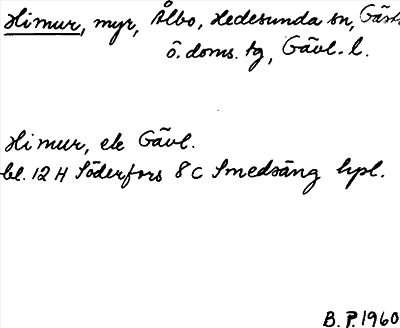 Himur, myr, Ålbo, Hedesunda sn, Gästr.
ö. doms. tg, Gävl. l.
Himur, ek Gävl.
bl. 12 H Söderfors 8 C Smedsäng hpl.
B. P. 1960